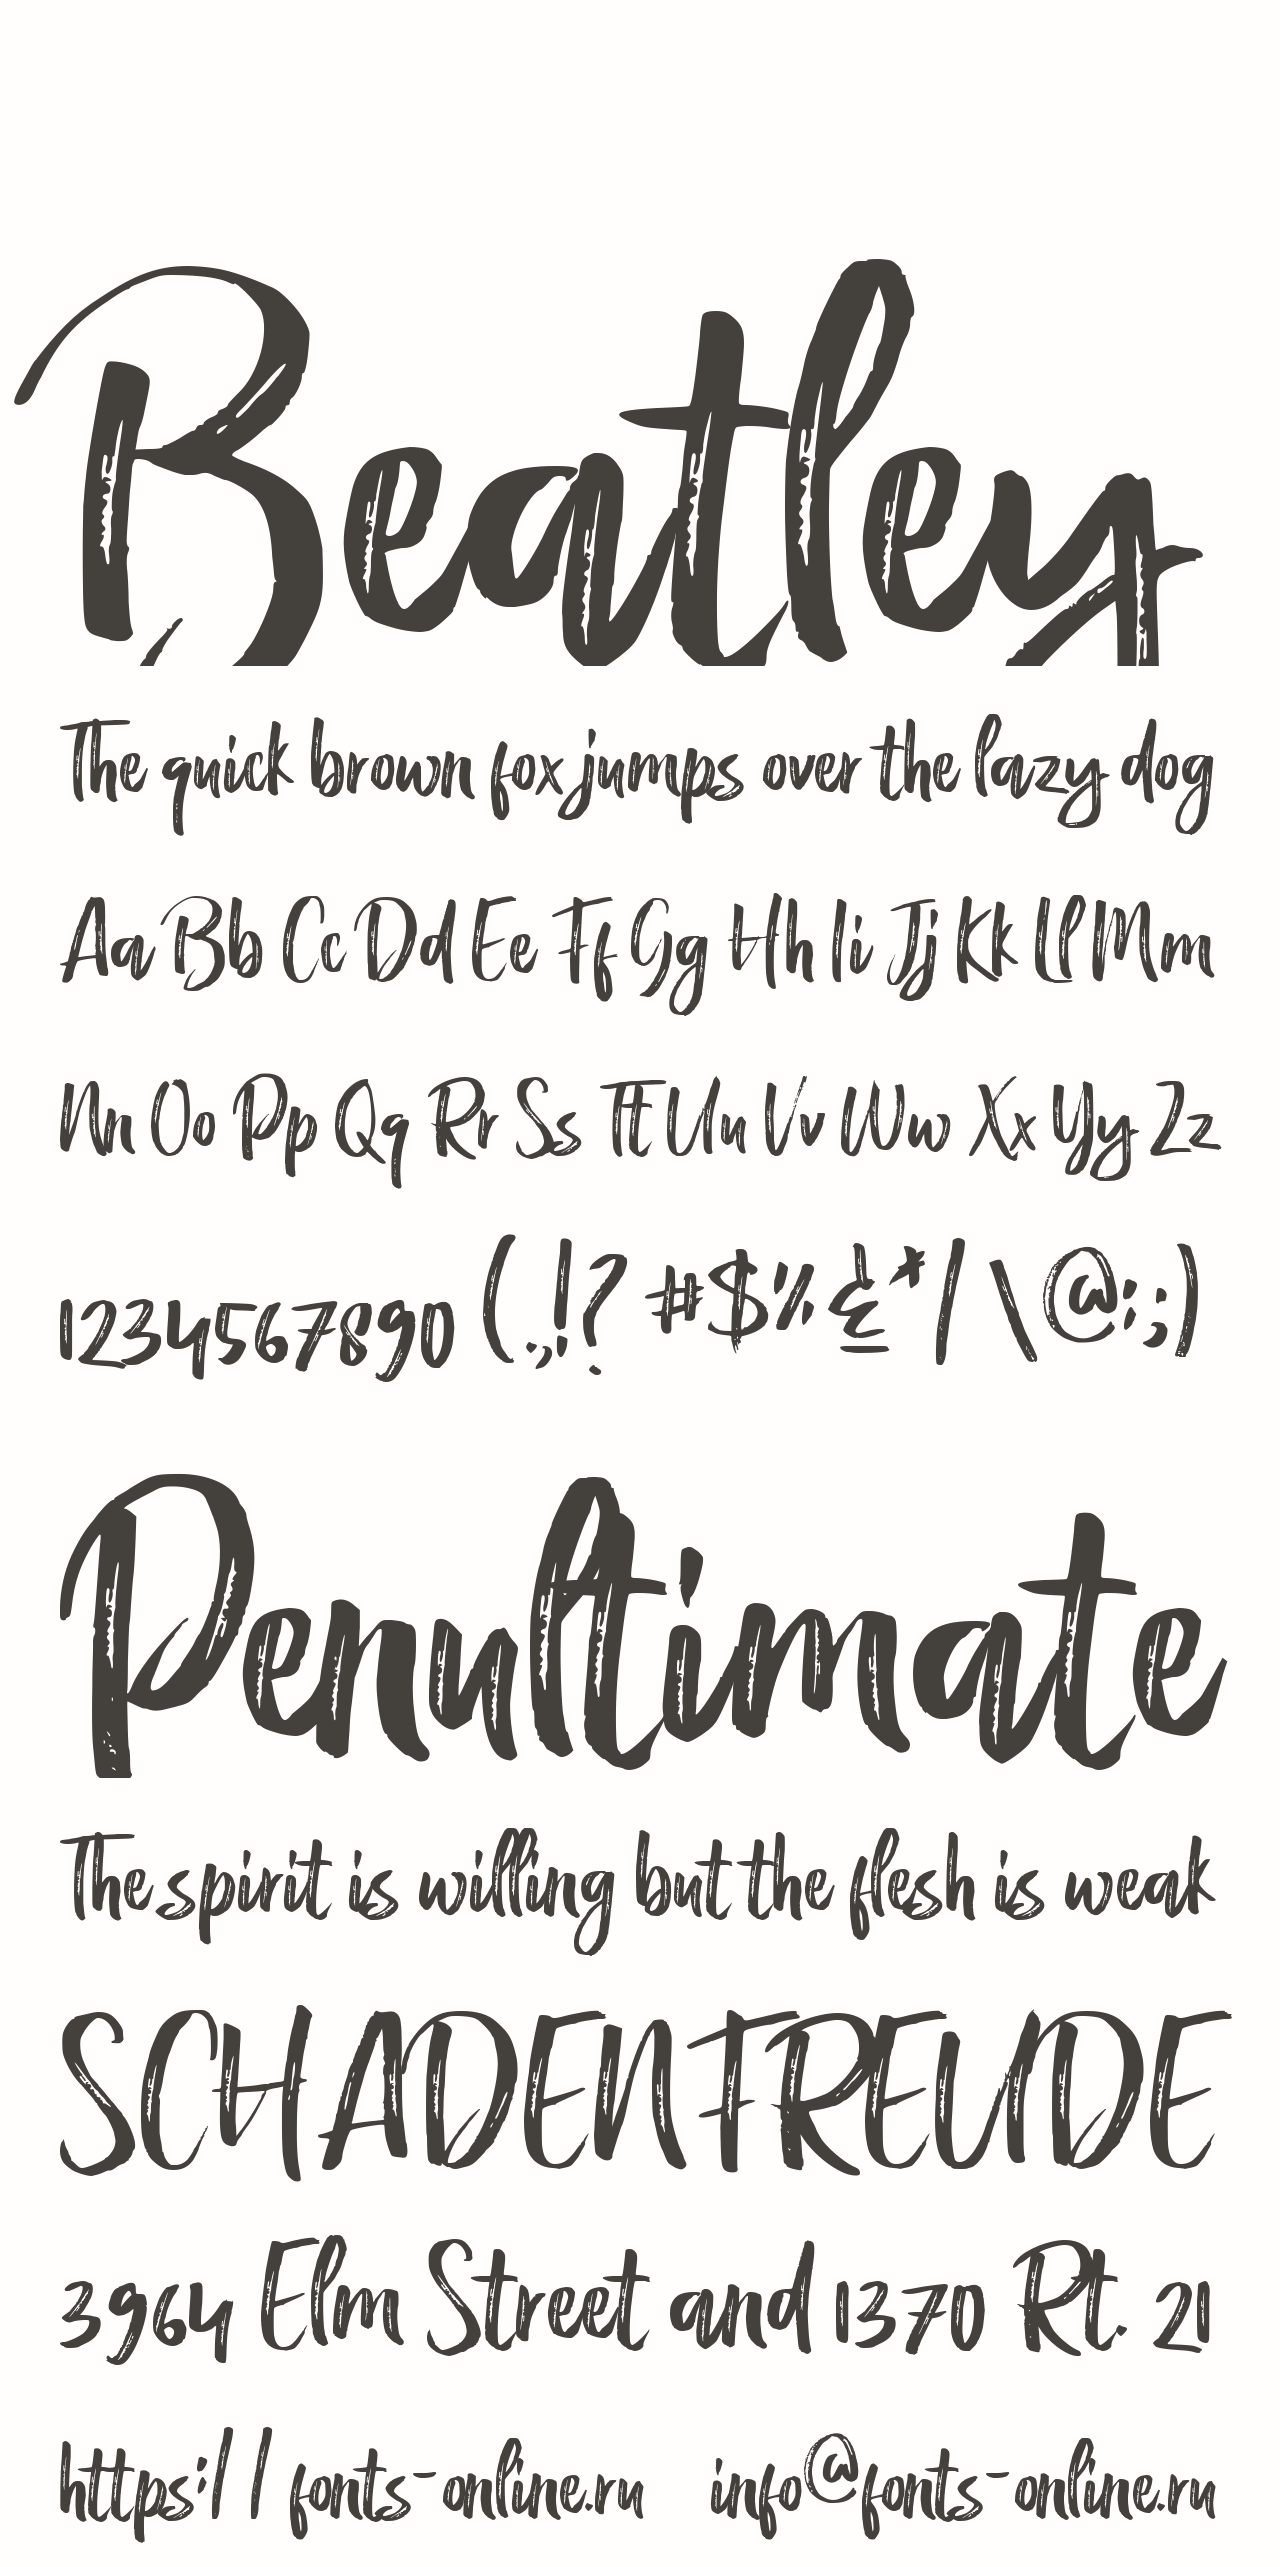 Beatley
The quick brown fox jumps over the lazy dog
Aa Bb Cc Dd Ee Ff Gg Hh Ii Jj Kk Ll Mm
Nn Oo Pp Qq Rr Ss Tt Uu Vv Ww Xx Yy Zz
1234567890 (.,!? #$%&*/ \@:;)
Penultimate
The spirit is willing but the flesh is weak
SCHADENFREUDE
3964 Elm Street and 1370 Rt. 21
https://fonts-online.ru info@fonts-online.ru